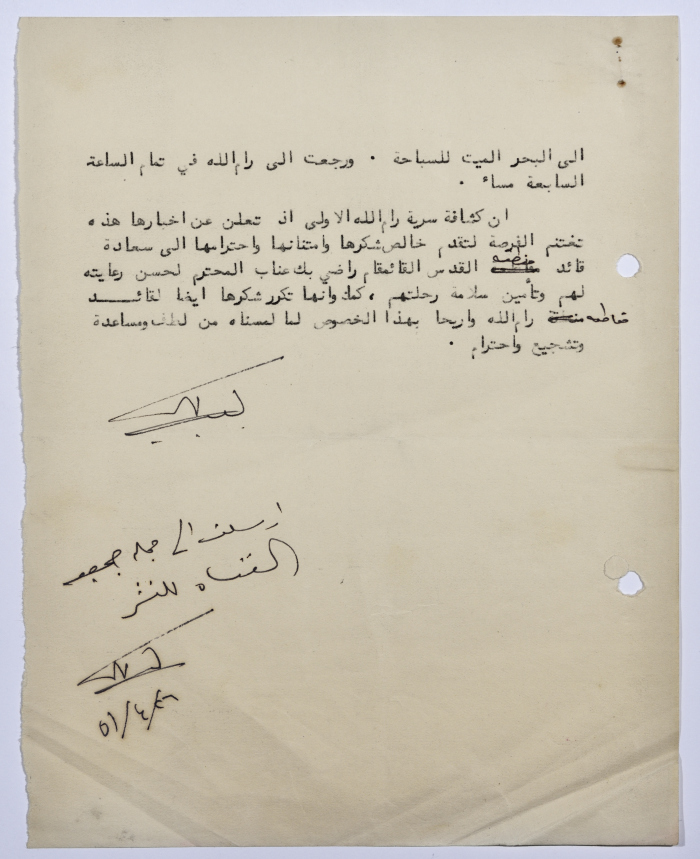 الى البحر الميت للسباحة . ورجعت الى رام الله في تمام الساعة
السابعة مساء .
ان كشافة سرية رام الله الاولى اذ تعلن عن اخبارها هذه
تغتنم الفرصة لتقدم خالص شكرها وامتنانها واحترامها الى سعادة
قائد القدس القائمقام راضي بك عناب المحترم لحسن رعايته
لهم وتأمين سلامة رحلتهم ، كما وانها تكرر شكرها ايضا لقائــــد
مقاطعة منطقة رام الله واريحا بهذا الخصوص لما لمسناه من لطف ومساعدة
وتشجيع واحترام .
ارسلت الى
للنشر